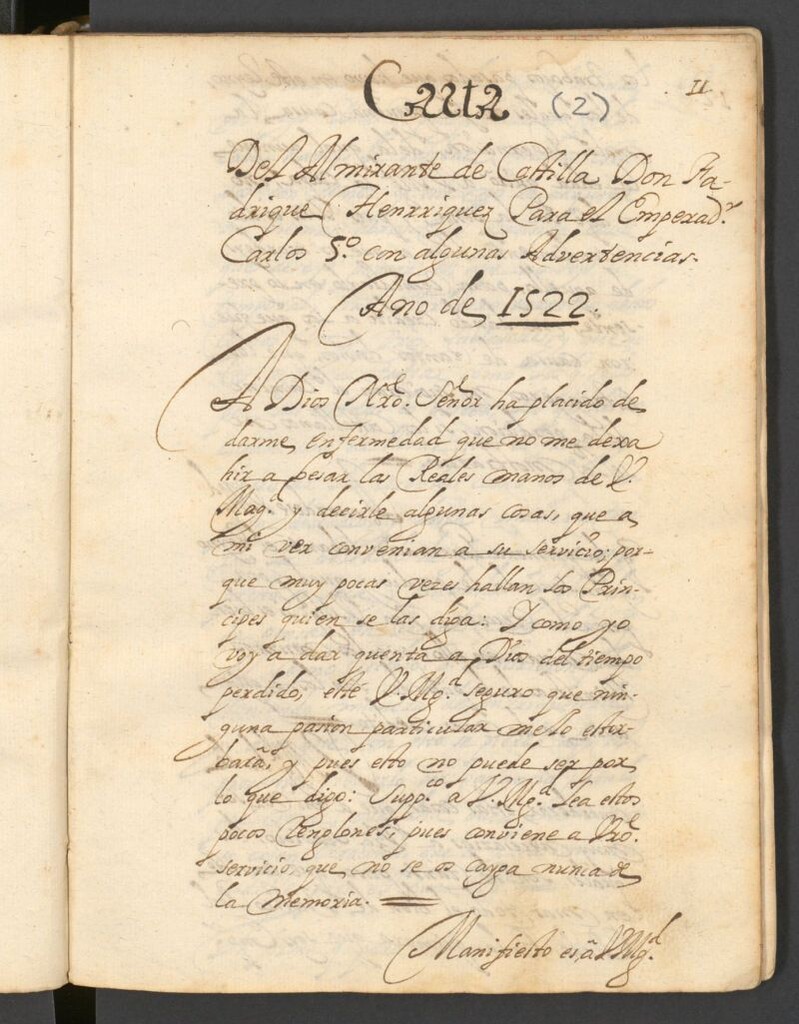 11
Carta (2)
Del Almirante de Castilla Don Fa-
drique Henrriquez Para el Emperad.r
Carlos 5.o con algunas Advertencias.
Ano de 1522.
A Dios Nro. Señor ha placido de
darme enfermedad que no me dexa
hir a besar las Reales manos de V.
Mag.d y decirle algunas cosas, que a
mi ver convenian a su servicio; por-
que muy pocas vezes hallan los Prin-
cipes quien se las diga: Y como yo
voy a dar quenta a Dios del tiempo
perdido, esté V. Mg.d seguro que nin-
guna pasion particular me lo estor-
bará; y pues esto no puede ser por
lo que digo: Supp.co a V. Mg.d lea estos
pocos Renglones, pues conviene a Vro.
servicio que no se os cayga nunca de
la memoria.
Manifiesto es, a V. Mg.d